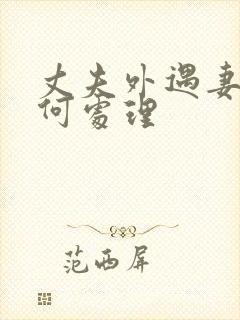 丈夫外遇妻
何處理
范西屏